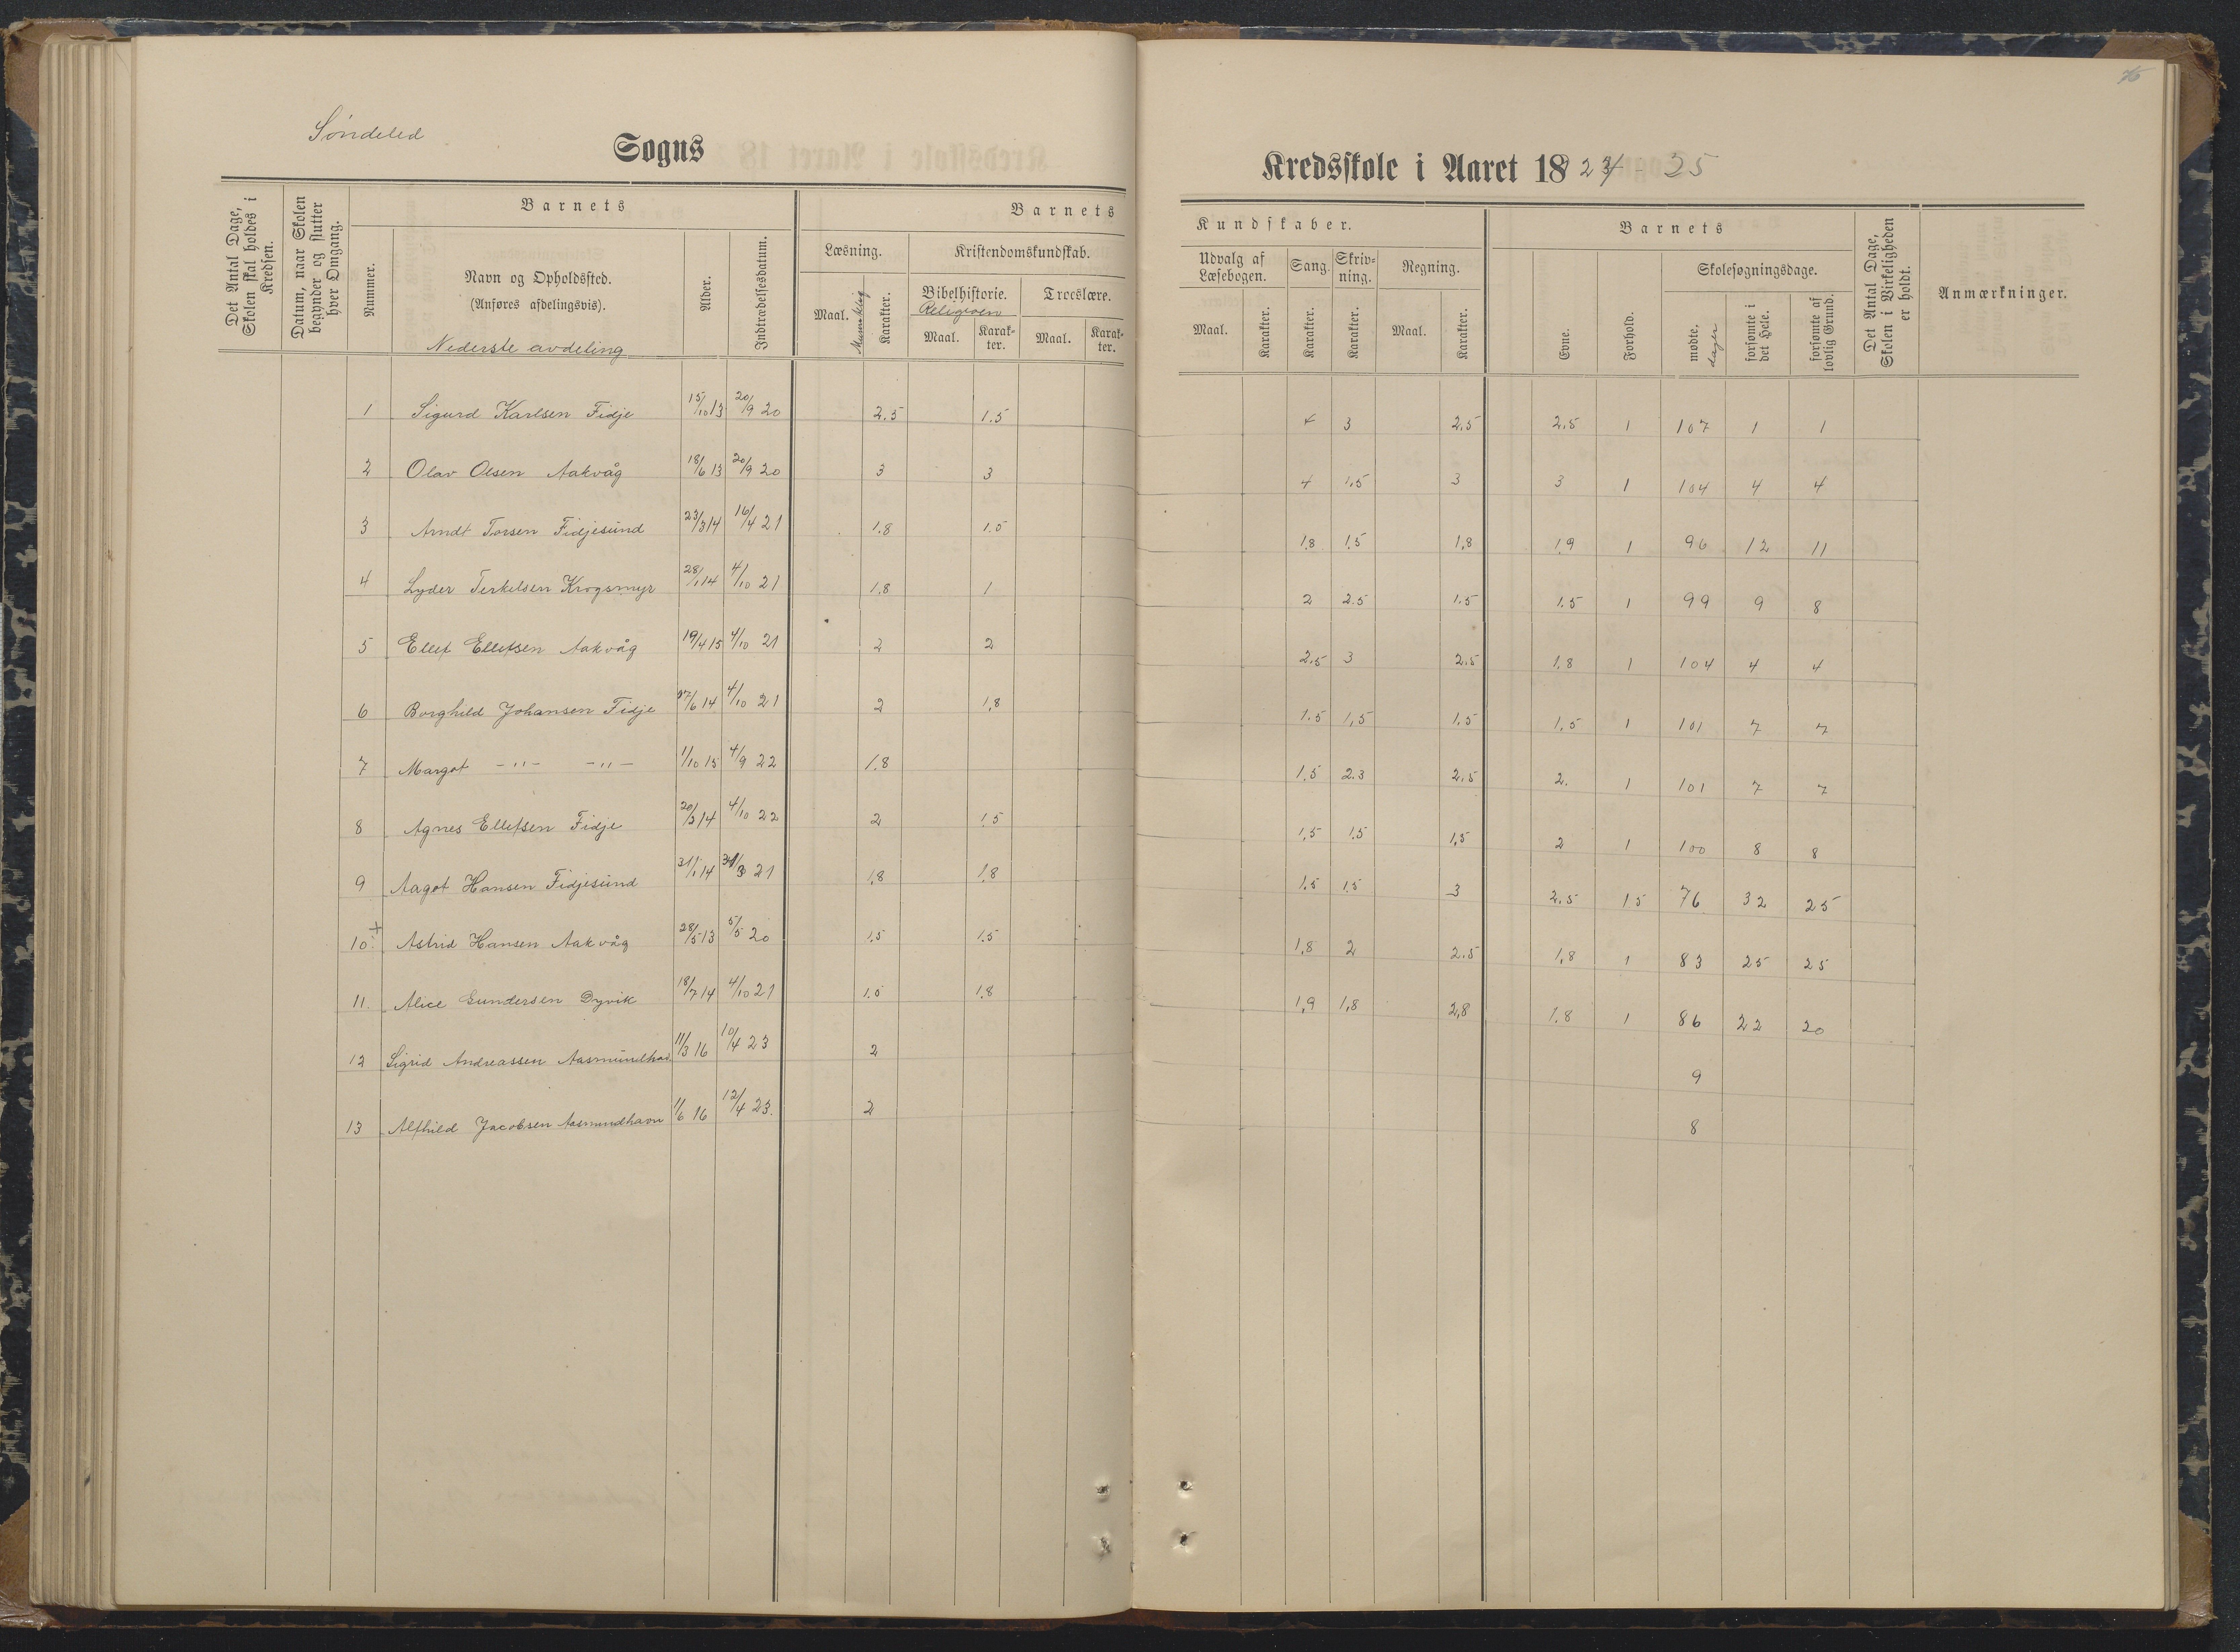 Søndeled
Sogns
Kredsskole i Aaret 18 24 - 25
Det Antal Dage, Skolen skal holdes i Kredsen.
Datum, naar Skolen begynder og slutter hver Omgang.
Barnets
Nummer.
Navn og Opholdssted.
(Anføres afdelingsvis).
Nederste avdeling
Alder.
Indtrædelsesdatum.
Barnets
Læsning.
Maal.
Muntlig
Karakter.
Kristendomskundskab.
Bibelhistorie.
Religion
Maal.
Karakter.
Troeslære.
Maal.
Karakter.
Kundskaber.
Udvalg af Læsebogen.
Maal.
Karakter.
Sang.
Karakter.
Skrivning.
Karakter.
Regning.
Maal.
Karakter.
Barnets
Evne.
Forhold.
Skolesøgningsdage.
mødte.
dager
forsømte i det Hele.
forsømte af lovlig Grund.
Det Antal Dage, Skolen i Virkeligheden er holdt.
Anmærkninger.
1 Sigurd Karlsen Fidje 15/10 13 20/9 20 2.5 1.5 4 3 2.5 2.5 1 107 1 1
2 Olav Olsen Aakvåg 18/6 13 20/9 20 3 3 4 1.5 3 3 1 104 4 4
3 Arndt Torsen Fidjesund 23/3 14 16/4 21 1.8 1.5 1.8 1.5 1,8 1.9 1 96 12 11
4 Lyder Terkelsen Krogsmyr 28/1 14 4/10 21 1.8 1 2 2.5 1.5 1.5 1 99 9 8
5 Ellef Ellefsen Aakvåg 19/4 15 4/10 21 2 2 2.5 3 2.5 1.8 1 104 4 4
6 Borghild Johansen Fidje 27/6 14 4/10 21 2 1,8 1.5 1,5 1.5 1,5 1 101 7 7
7 Margot -"- -"- 1/10 15 4/9 22 1.8 1.5 2.3 2.5 2. 1 101 7 7
8 Agnes Ellefsen Fidje 20/3 14 4/10 22 2 1.5 1,5 1.5 1,5 2 1 100 8 8
9 Aagot Hansen Fidjesund 31/1 14 21 1,8 1.8 1.5 1.5 3 2.5 1.5 76 32 25
10. + Astrid Hansen Aakvåg 28/5 13 5/5 20 1.5 1.5 1,8 2 2.5 1,8 1 83 25 25
11. Alice Gundersen Dyvik 18/7 14 4/10 21 1.5 1.8 1,9 1,8 2,8 1.8 1 86 22 20
12 Sigrid Andreassen 11/3 16 10/4 23 2 9
13 Alfhild Jacobsen Aasmundhavn 1/6 16 12/4 23. 2 8